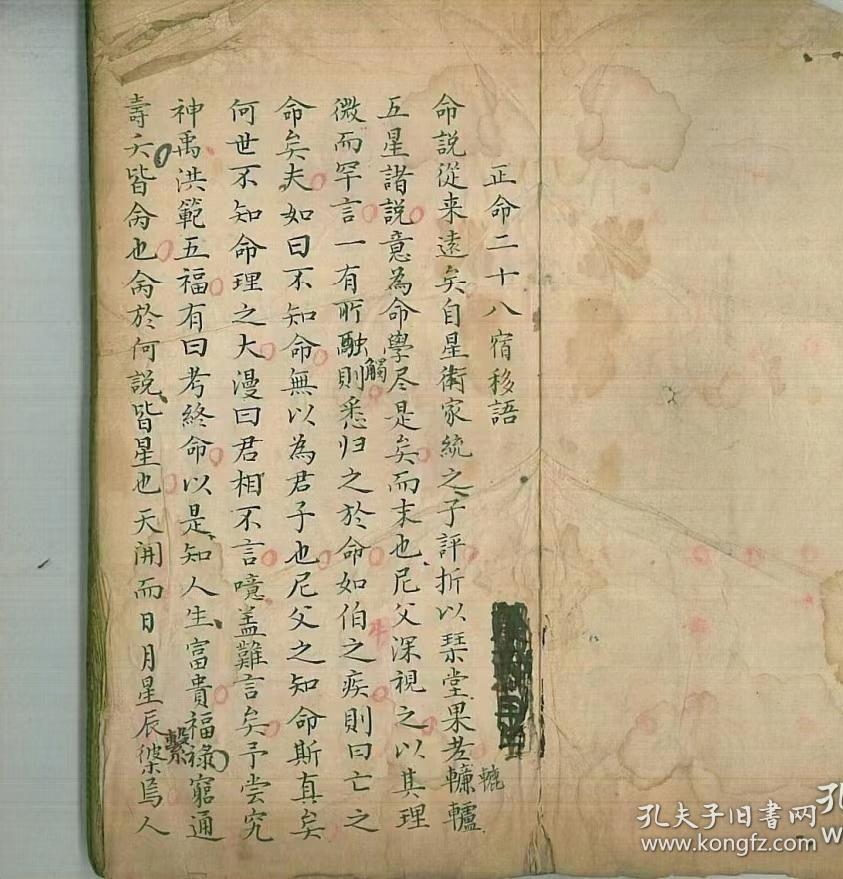 正命二十八宿移語
命說從来遠矣自星術家統之子評折以琹堂果老轆轤
轆
五星諸說意為命學尽是矣而末也尼父深視之以其理
微而罕言一有所融則悉归之於命如伯之疾則曰亡之
觸
命矣夫如曰不知命無以為君子也尼父之知命斯真矣
何世不知命理之大漫曰君相不言噫盖難言矣予尝究
牛
神禹洪範五福有曰考終命以是知人生富貴福祿窮通
壽夭皆禽也禽於何說皆星也天開而日月星辰槳焉人
繫
孔夫子旧书网
www.kongfz.com